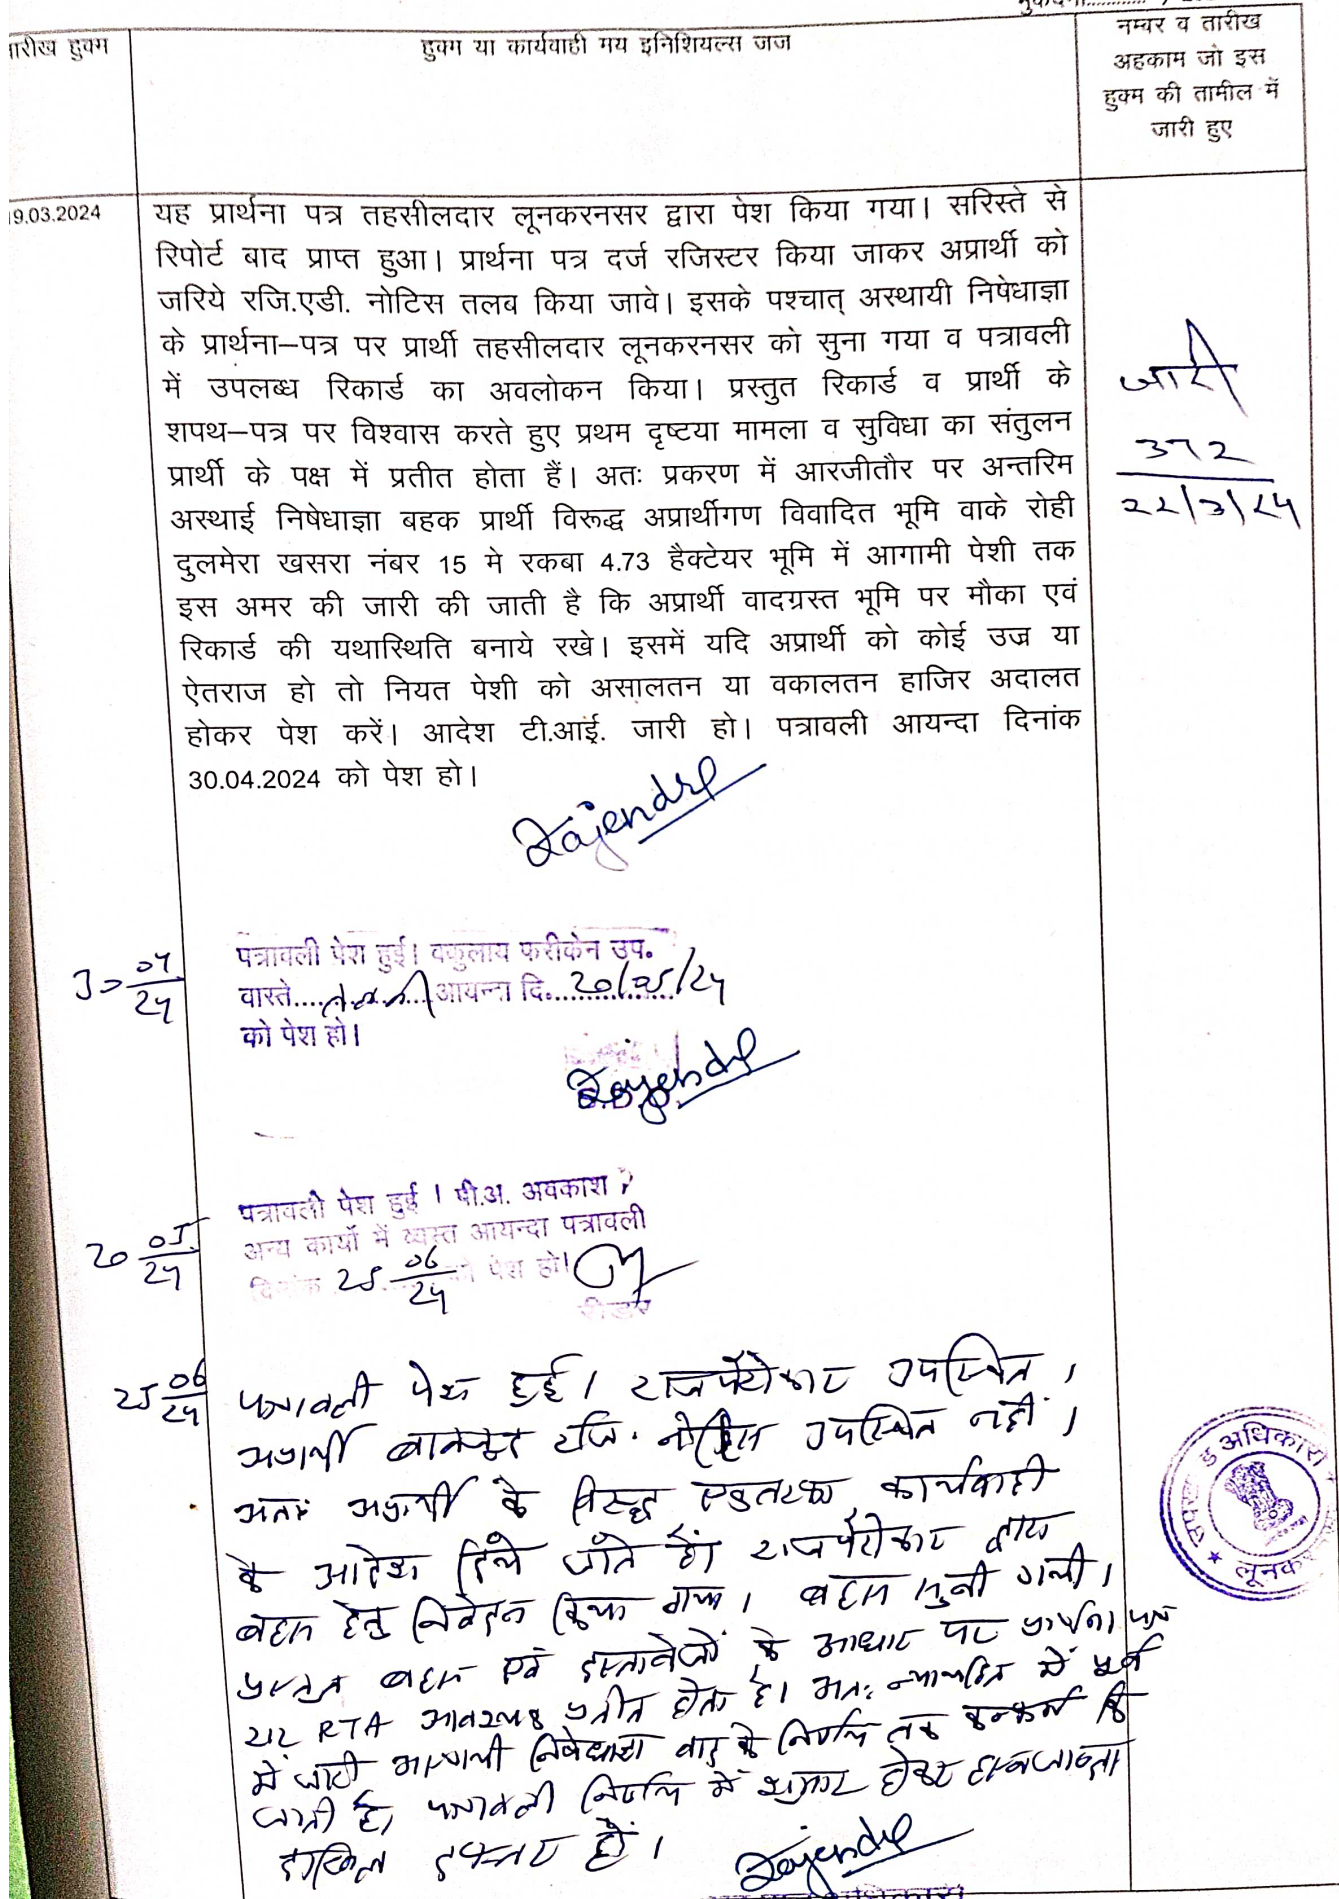 तारीख हुक्म
हुक्म या कार्यवाही मय इनिशियल्स जज
नम्बर व तारीख
अहकाम जो इस
हुक्म की तामील में
जारी हुए
9.03.2024
यह प्रार्थना पत्र तहसीलदार लूनकरनसर द्वारा पेश किया गया। सरिस्ते से
रिपोर्ट बाद प्राप्त हुआ। प्रार्थना पत्र दर्ज रजिस्टर किया जाकर अप्रार्थी को
जरिये रजि.एडी. नोटिस तलब किया जावे। इसके पश्चात् अस्थायी निषेधाज्ञा
के प्रार्थना–पत्र पर प्रार्थी तहसीलदार लूनकरनसर को सुना गया व पत्रावली
में उपलब्ध रिकार्ड का अवलोकन किया। प्रस्तुत रिकार्ड व प्रार्थी के
शपथ–पत्र पर विश्वास करते हुए प्रथम दृष्टया मामला व सुविधा का संतुलन
प्रार्थी के पक्ष में प्रतीत होता हैं। अतः प्रकरण में आरजीतौर पर अन्तरिम
अस्थाई निषेधाज्ञा बहक प्रार्थी विरूद्ध अप्रार्थीगण विवादित भूमि वाके रोही
दुलमेरा खसरा नंबर 15 मे रकबा 4.73 हैक्टेयर भूमि में आगामी पेशी तक
इस अमर की जारी की जाती है कि अप्रार्थी वादग्रस्त भूमि पर मौका एवं
रिकार्ड की यथास्थिति बनाये रखे। इसमें यदि अप्रार्थी को कोई उज्र या
ऐतराज हो तो नियत पेशी को असालतन या वकालतन हाजिर अदालत
होकर पेश करें। आदेश टी.आई. जारी हो। पत्रावली आयन्दा दिनांक
30.04.2024 को पेश हो।
जारी
372
22/3/24
Rajendra
30 04/24
पत्रावली पेश हुई। वकुलाय फरीकेन उप.
वास्ते.... आयन्ना दि. 20/05/24
को पेश हो।
Rajendra
20 05/24
पत्रावली पेश हुई । पी.अ. अवकाश
अन्य कार्यों में व्यस्त आयन्दा पत्रावली
दिनांक 25 06/24 को पेश हो।
रीडर
25 06/24
पत्रावली पेश हुई। राजपैरोकार उपस्थित।
अप्रार्थी बावजूद रजि. नोटिस उपस्थित नहीं।
अतः अप्रार्थी के विरूद्ध एकतरफा कार्यवाही
के आदेश दिये जाते हैं। राजपैरोकार द्वारा
बहस हेतु निवेदन किया गया। बहस सुनी गयी।
प्रस्तुत बहस एवं दस्तावेजों के आधार पर प्रार्थना पत्र
RTA आवश्यक प्रतीत होता है। अतः न्यायहित में पूर्व
में जारी अस्थायी निषेधाज्ञा वाद के निर्णय तक कन्फर्म कि
जाती है। पत्रावली निर्णय में शुमार होकर
दाखिल दफ्तर हो।
Rajendra
उपखण्ड अधिकारी
लूनकर